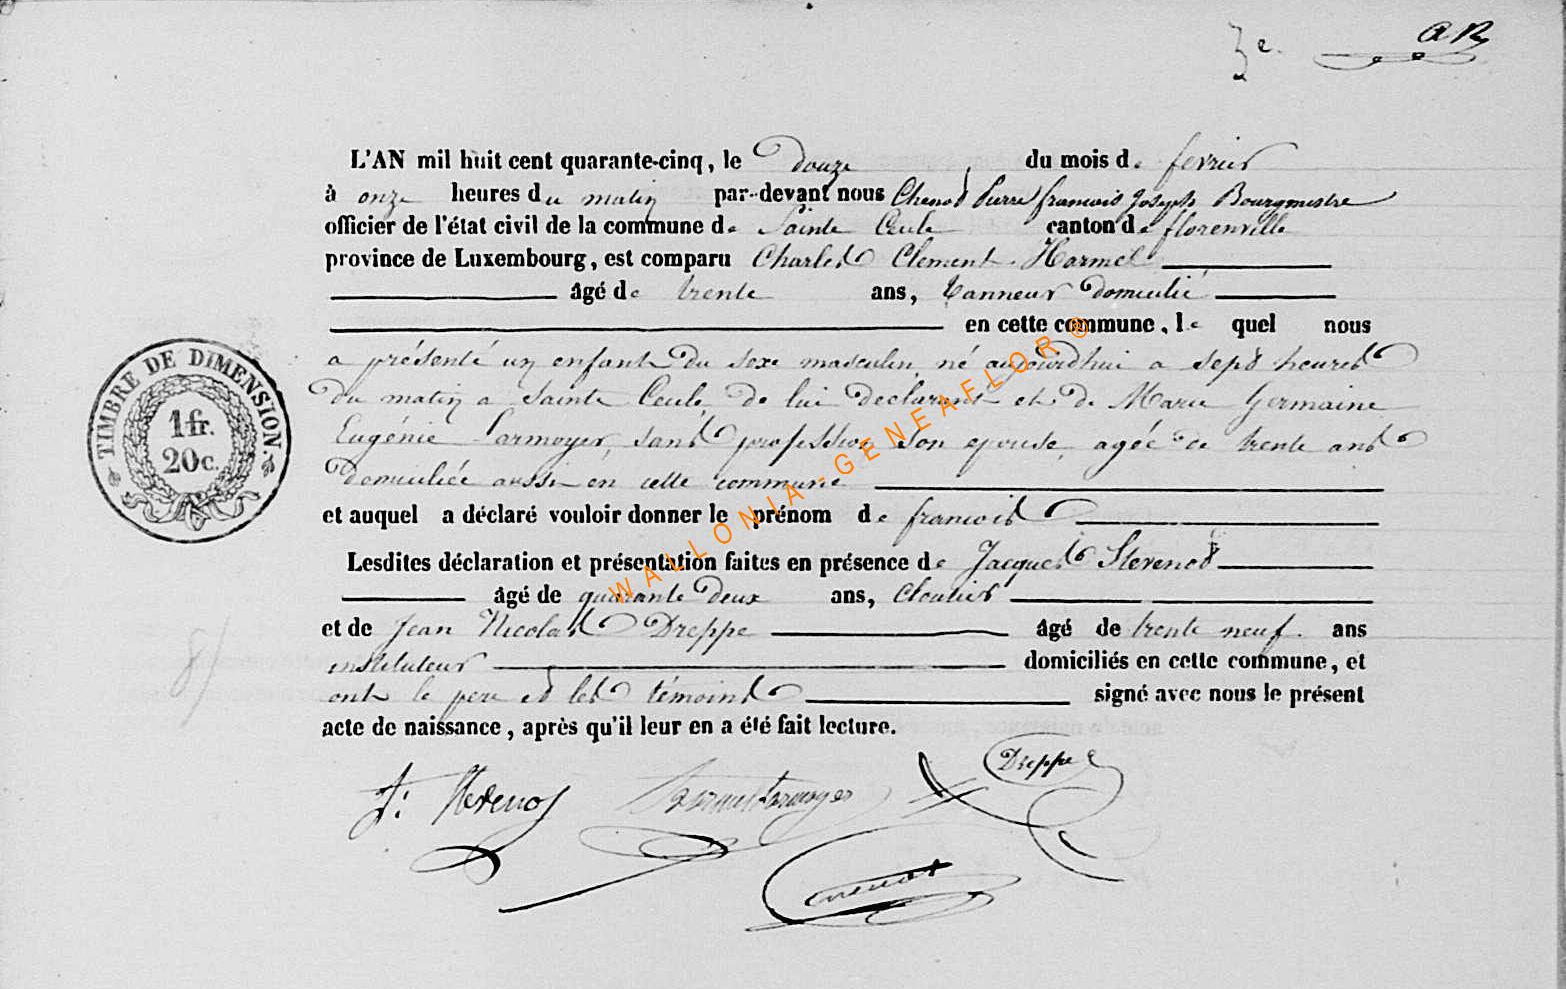 3e. a R
L'AN mil huit cent quarante-cinq, le douze du mois de fevrier
à onze heures du matin par-devant nous Chenot Pierre francois Joseph Bourgmestre
officier de l'état civil de la commune de Sainte Cecile canton de florenville
province de Luxembourg, est comparu Charles Clement Harmel
âgé de trente ans, tanneur domicilié
en cette commune, lequel nous
a présenté un enfant du sexe masculin, né aujourdhui a sept heures
du matin a Sainte Cecile, de lui declarant et de Marie Germaine
Eugénie Larmoyer, sans profession son epouse, agée de trente ans
domiciliée aussi en cette commune
et auquel a déclaré vouloir donner le prénom de francois
Lesdites déclaration et présentation faites en présence de Jacques Stevenot
âgé de quarante deux ans, cloutier
et de Jean Nicolas Dreppe âgé de trente neuf ans
instituteur domiciliés en cette commune, et
ont le pere et les témoins signé avec nous le présent
acte de naissance, après qu'il leur en a été fait lecture.
J: Stevenot Harmel Larmoyer Dreppe
Chenot
TIMBRE DE DIMENSION.
1 fr.
20 c.
WALLONIA-GENEAFLOR ®